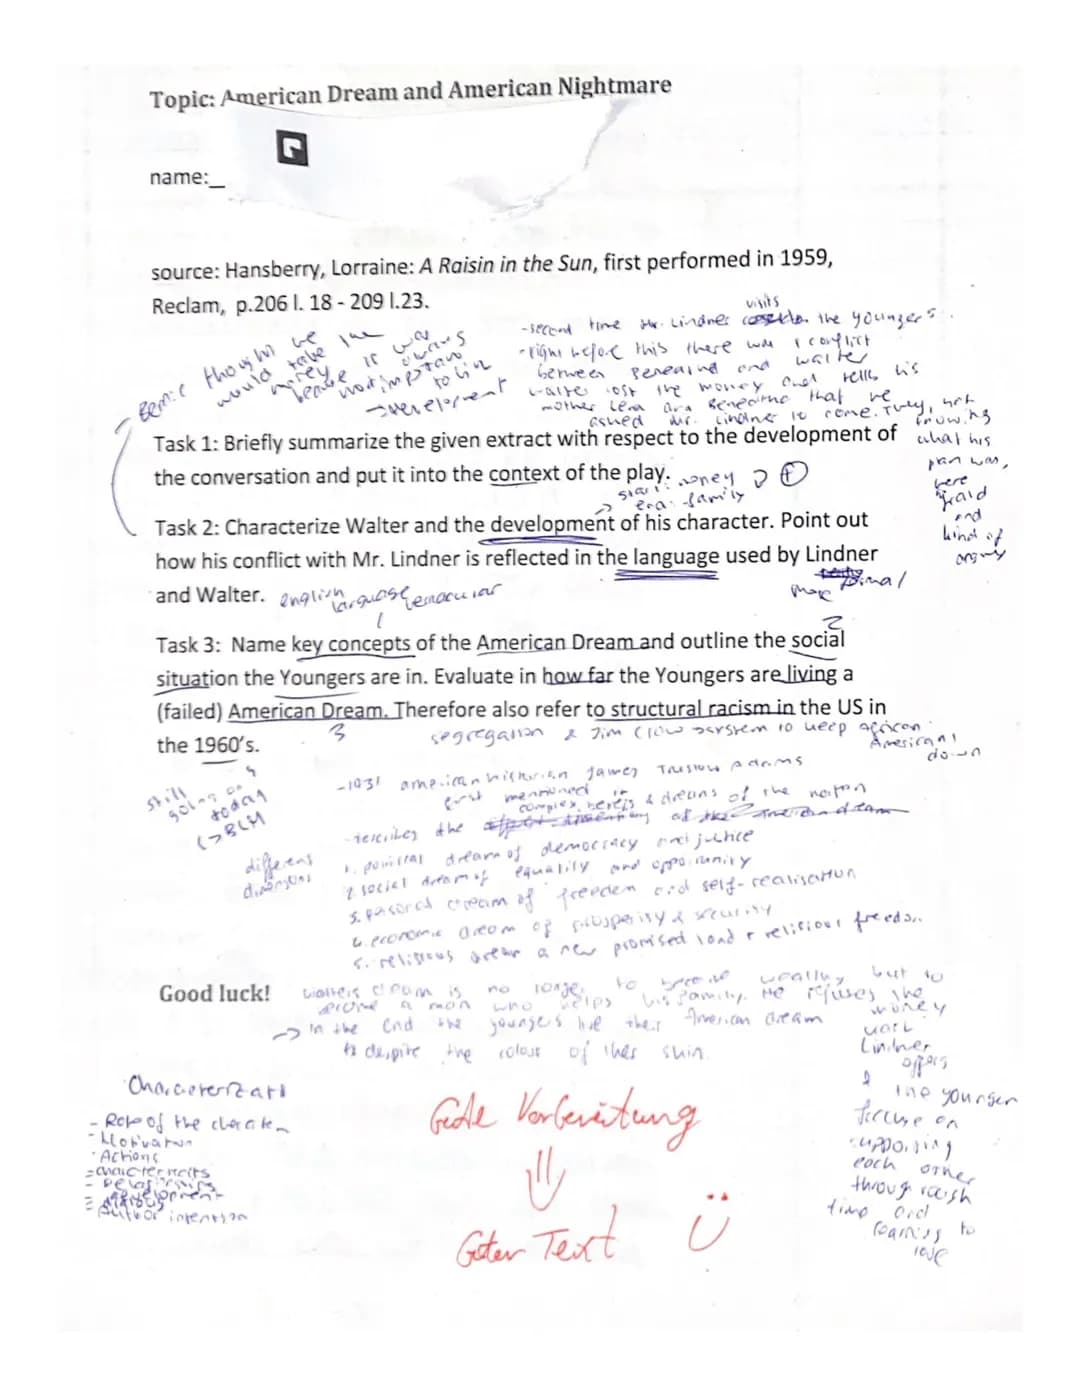 Topic: American Dream and American Nightmare
name:_
source: Hansberry, Lorraine: A Raisin in the Sun, first performed in 1959,
Reclam, p.206 l. 18 - 209 l.23.
visits
-second time Mr. Lindner the younger's.
-right before this there was a conflict
between Beneatha and walter
walter lost the money and tells his
mother Lena and Beneatha that he
asked Mr. Lindner to come. They, not
knowing
what his
plan was,
were
afraid
and
kind of
angry
thought he
would take the
money
it was always
not important
to him
->development
Task 1: Briefly summarize the given extract with respect to the development of
the conversation and put it into the context of the play.
start: money
-> end: family
Task 2: Characterize Walter and the development of his character. Point out
how his conflict with Mr. Lindner is reflected in the language used by Lindner
and Walter.
english language vernacular
more formal
1
2
Task 3: Name key concepts of the American Dream and outline the social
situation the Youngers are in. Evaluate in how far the Youngers are living a
(failed) American Dream. Therefore also refer to structural racism in the US in
the 1960's.
3
segregation & Jim Crow system to keep african
Americans
down
4
still
going on
today
(->BLM
-1931 american historian James Truslow Adams
first mentioned it
complex beliefs & dreams of the nation
-describes the
different
dimensions
1. political dream of democracy and justice
2. social dream of equality and opportunity
3. personal dream of freedom and self-realisation
4. economic dream of prosperity & security
5. religious dream a new promised land + religious freedom
Good luck!
walters dream is no longer to become wealthy, but to
become a man who helps his family. He refuses the
money
Lindner
offers
-> in the end the youngers live their American dream
despite the colour of their skin.
&
the younger
focus on
supporting
each other
through
time and
learning to
love
Characterization
- Role of the character
- Motivation
- Actions
- characteristics
- Relationships
- development
- Author intention
Gute Vorbereitung
Guter Text